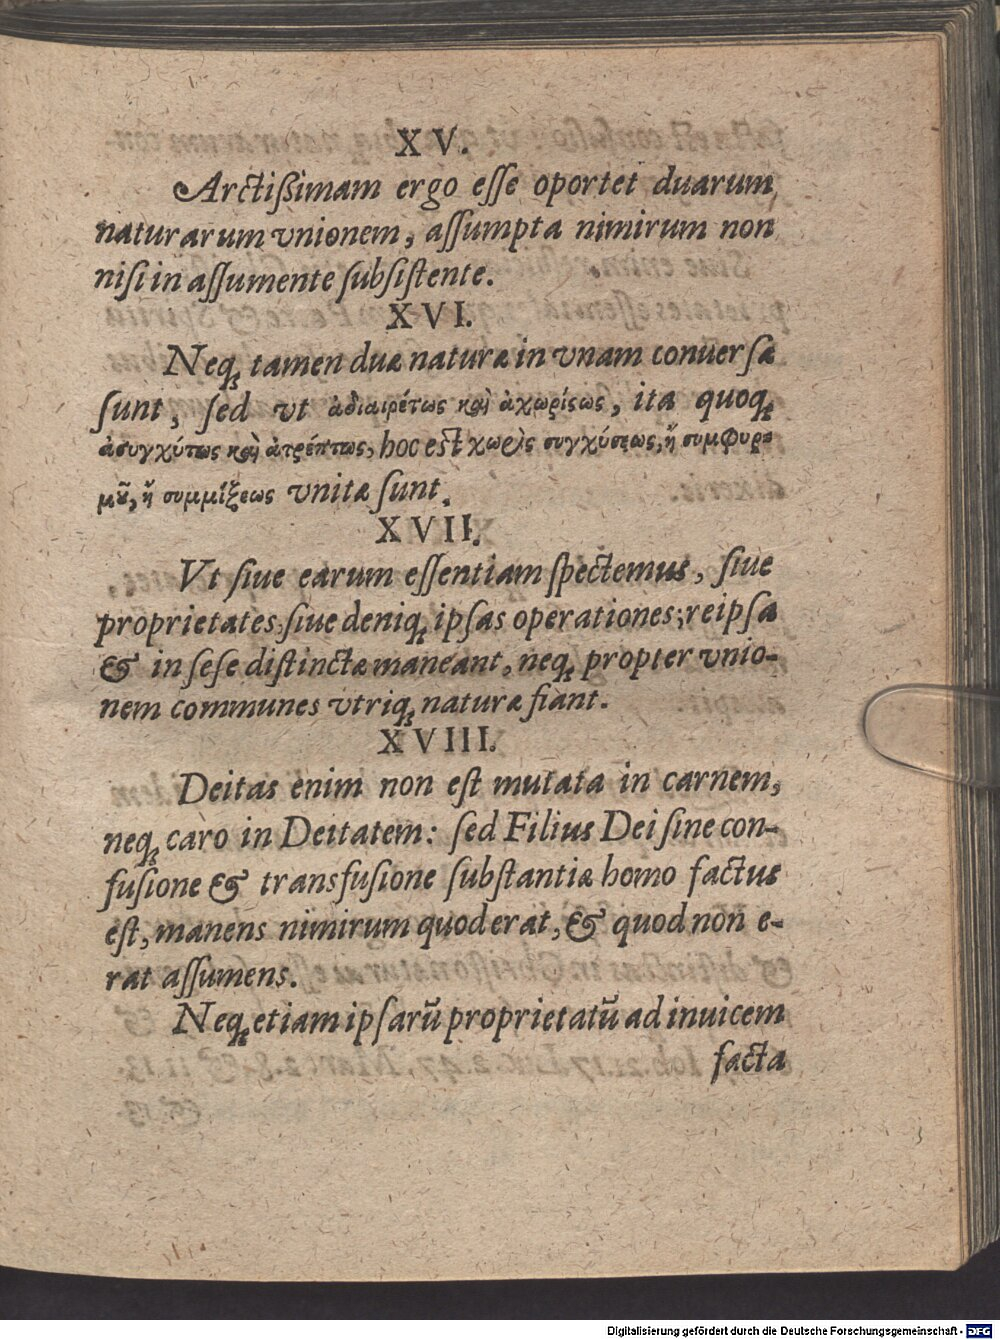 XV.
Arctißimam ergo eſſe oportet duarum
naturarum vnionem, aſſumpta nimirum non
niſi in aſſumente ſubſiſtente.
XVI.
Neq; tamen duæ naturæ in vnam conuerſæ
ſunt, ſed vt ἀδιαιρέτως καὶ ἀχωρίϛως, ita quoq;
ἀσυγχύτως καὶ ἀτρέπτως, hoc eſt χωρὶς συγχύσεως, ἢ συμφυρ-
μοῦ, ἢ συμμίξεως vnitæ ſunt.
XVII.
Vt ſiue earum eſſentiam ſpectemus, ſiue
proprietates, ſiue deniq; ipſas operationes; reipſa
& in ſeſe diſtinctæ maneant, neq; propter vnio-
nem communes vtriq; naturæ fiant.
XVIII.
Deitas enim non eſt mutata in carnem,
neq; caro in Deitatem: ſed Filius Dei ſine con-
fuſione & transfuſione ſubſtantiæ homo factus
eſt, manens nimirum quod erat, & quod non e-
rat aſſumens.
Neq; etiam ipſarũ proprietatũ ad inuicem
facta
Digitalisierung gefördert durch die Deutsche Forschungsgemeinschaft - DFG